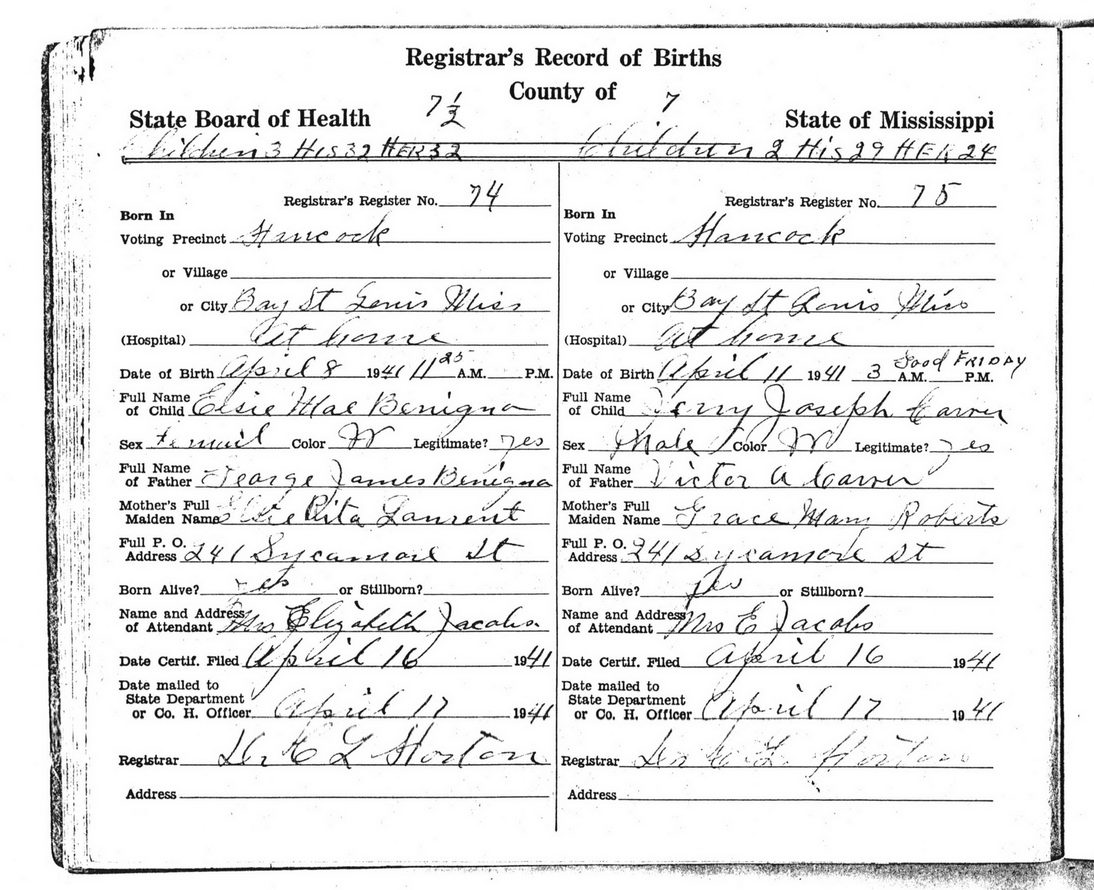 Registrar's Record of Births
County of
State Board of Health 7½ 7 State of Mississippi
Children 3 HIS 32 HER 32
Children 2 HIS 29 HER 24
Registrar's Register No. 74
Born In
Voting Precinct Hancock
or Village
or City Bay St Louis Miss
(Hospital) At home
Date of Birth April 8 1941 11 25 A.M. P.M.
Full Name
of Child Elsie Mae Benigno
Sex Female Color W Legitimate? yes
Full Name
of Father George James Benigno
Mother's Full
Maiden Name Elsie Rita Laurent
Full P. O.
Address 241 Sycamore St
Born Alive? yes or Stillborn?
Name and Address
of Attendant Mrs Elizabeth Jacobs
Date Certif. Filed April 16 1941
Date mailed to
State Department
or Co. H. Officer April 17 1941
Registrar Dr C L Horton
Address
Registrar's Register No. 75
Born In
Voting Precinct Hancock
or Village
or City Bay St Louis Miss
(Hospital) At home
Date of Birth April 11 1941 3 A.M. Good FRIDAY P.M.
Full Name
of Child Jerry Joseph Carver
Sex Male Color W Legitimate? yes
Full Name
of Father Victor A Carver
Mother's Full
Maiden Name Grace Mary Roberts
Full P. O.
Address 241 Sycamore St
Born Alive? yes or Stillborn?
Name and Address
of Attendant Mrs E Jacobs
Date Certif. Filed April 16 1941
Date mailed to
State Department
or Co. H. Officer April 17 1941
Registrar Dr C L Horton
Address